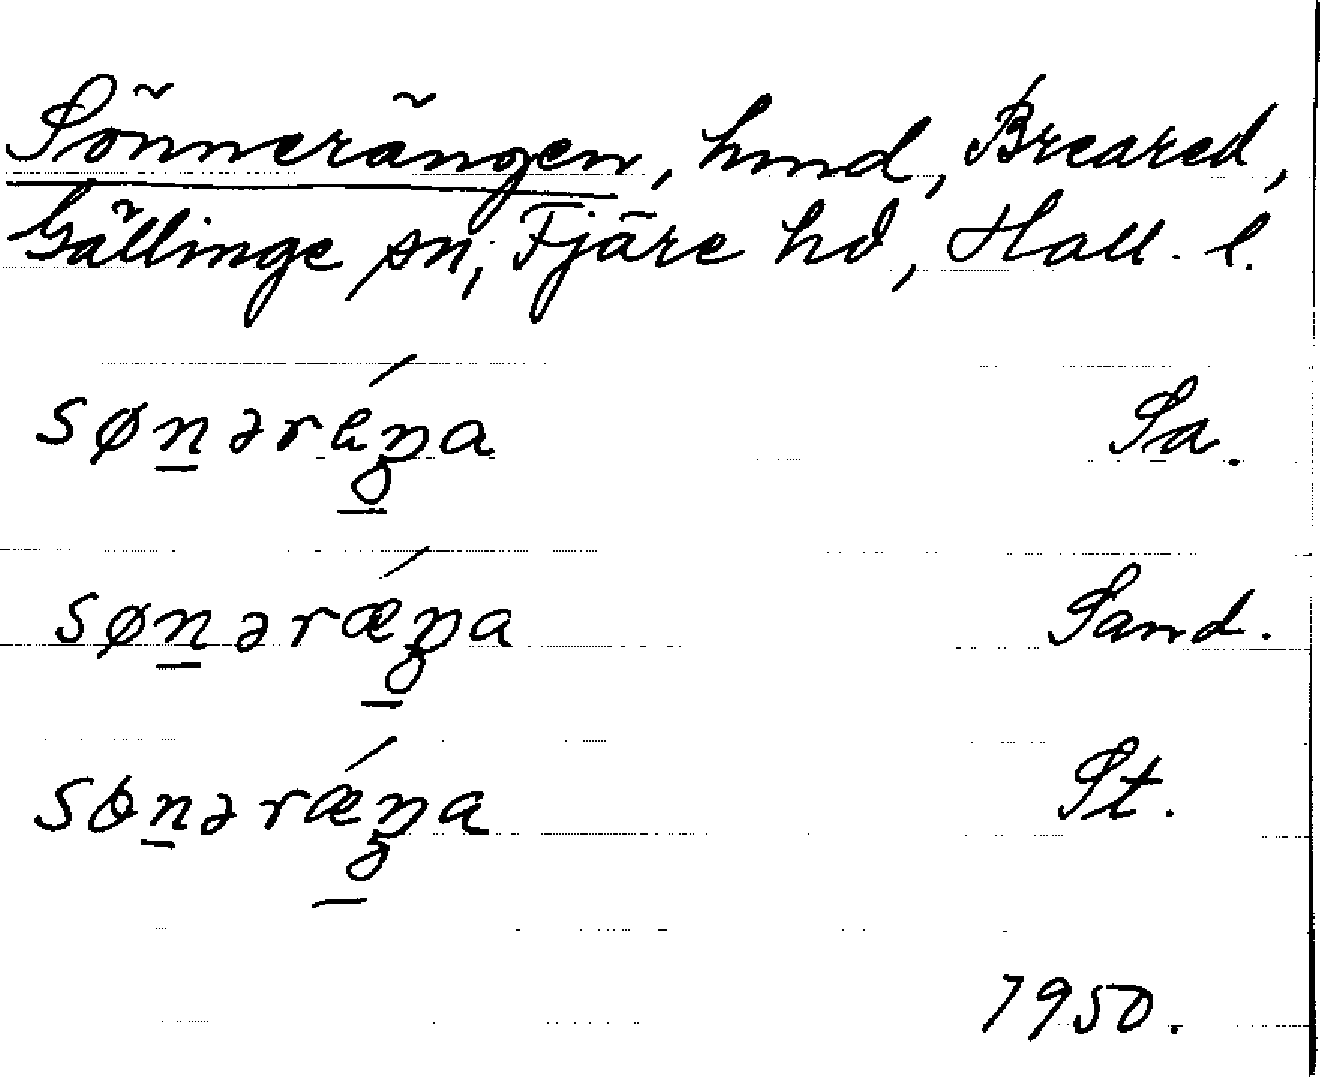 Sönnerängen, hmd, Breared,
Gällinge sn, Fjäre hd, Hall. l.
søn̲ərǽŋ̲a Sa.
søn̲ərǽŋ̲a Sand.
sɵn̲ərǽŋ̲a St.
1950.